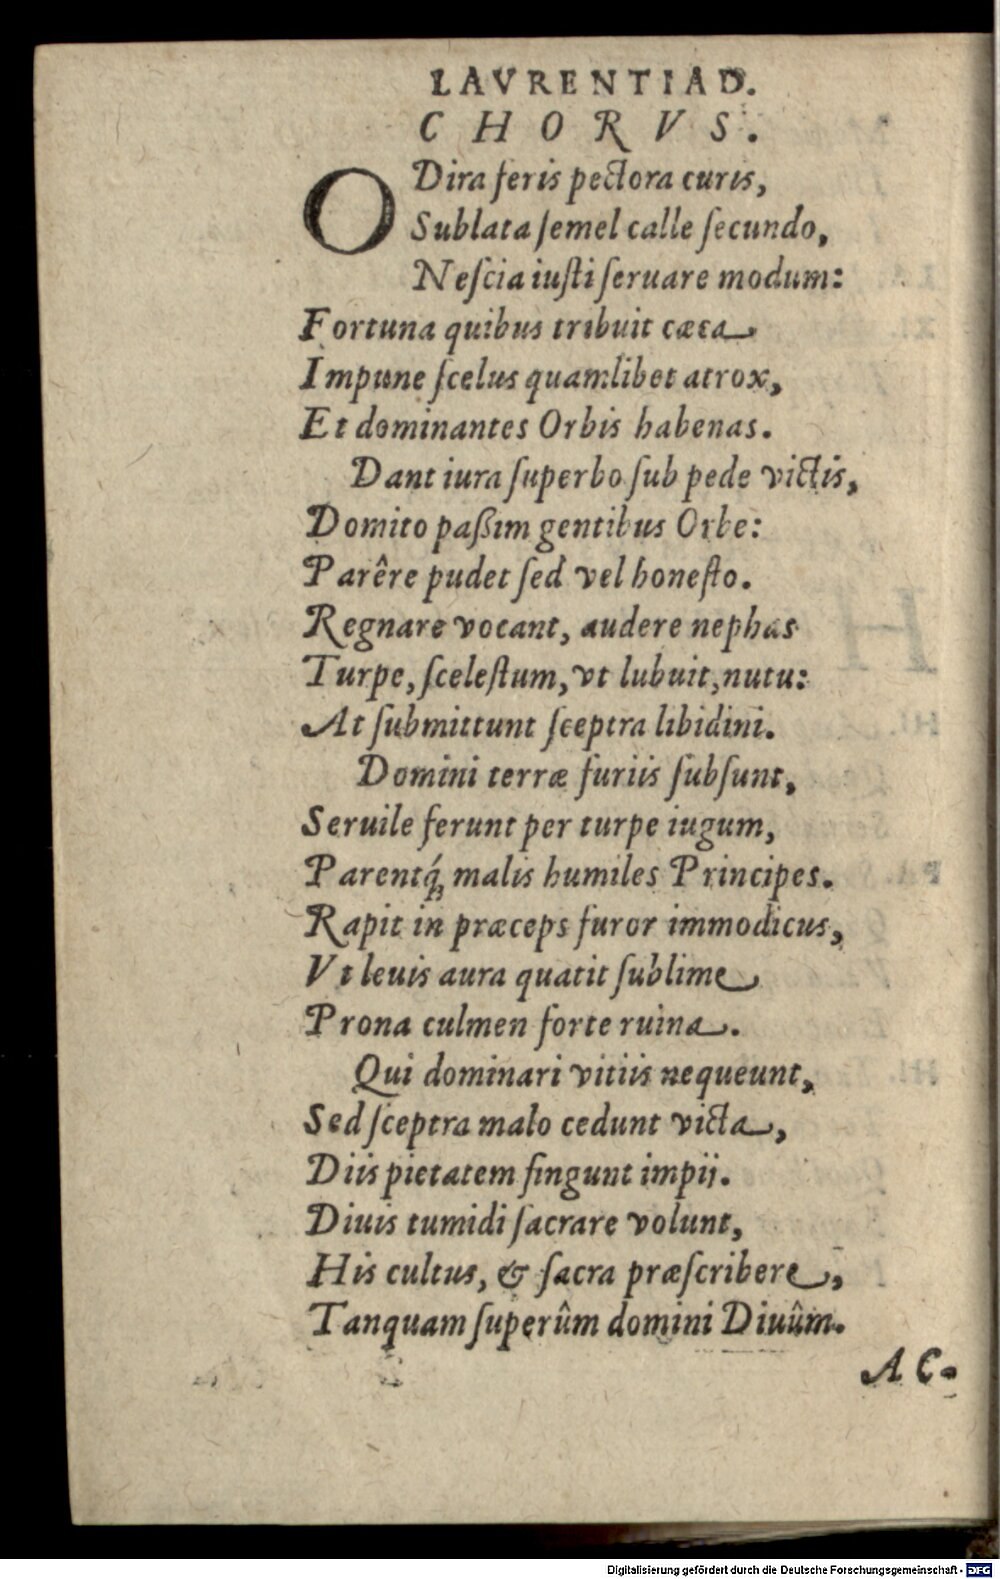 LAVRENTIAD.
CHORVS.
O Dira feris pectora curis,
Sublata ſemel calle ſecundo,
Neſcia iuſti ſeruare modum:
Fortuna quibus tribuit cæca
Impune ſcelus quamlibet atrox,
Et dominantes Orbis habenas.
Dant iura ſuperbo ſub pede victis,
Domito paßim gentibus Orbe:
Parêre pudet ſed vel honeſto.
Regnare vocant, audere nephas
Turpe, ſceleſtum, vt lubuit, nutu:
At ſubmittunt ſceptra libidini.
Domini terræ furiis ſubſunt,
Seruile ferunt per turpe iugum,
Parentq́; malis humiles Principes.
Rapit in præceps furor immodicus,
Vt leuis aura quatit ſublime
Prona culmen forte ruina.
Qui dominari vitiis nequeunt,
Sed ſceptra malo cedunt victa,
Diis pietatem fingunt impij.
Diuis tumidi ſacrare volunt,
His cultus, & ſacra præſcribere,
Tanquam ſuperûm domini Diuûm.
AC-
Digitalisierung gefördert durch die Deutsche Forschungsgemeinschaft - DFG